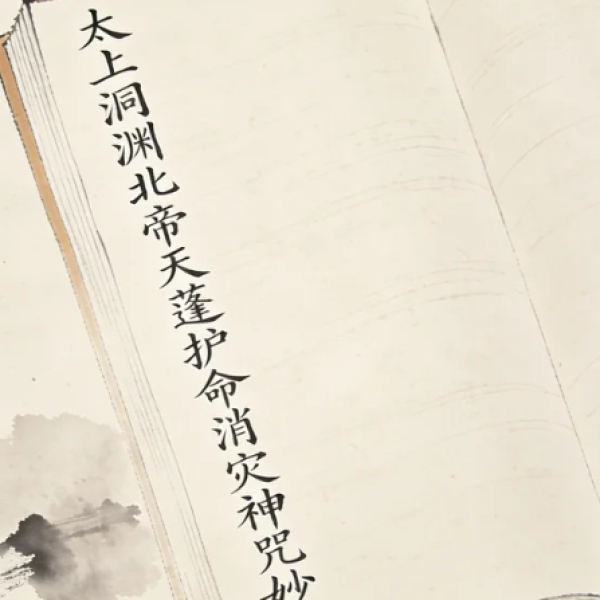 太上洞渊北帝天蓬护命消灾神咒妙